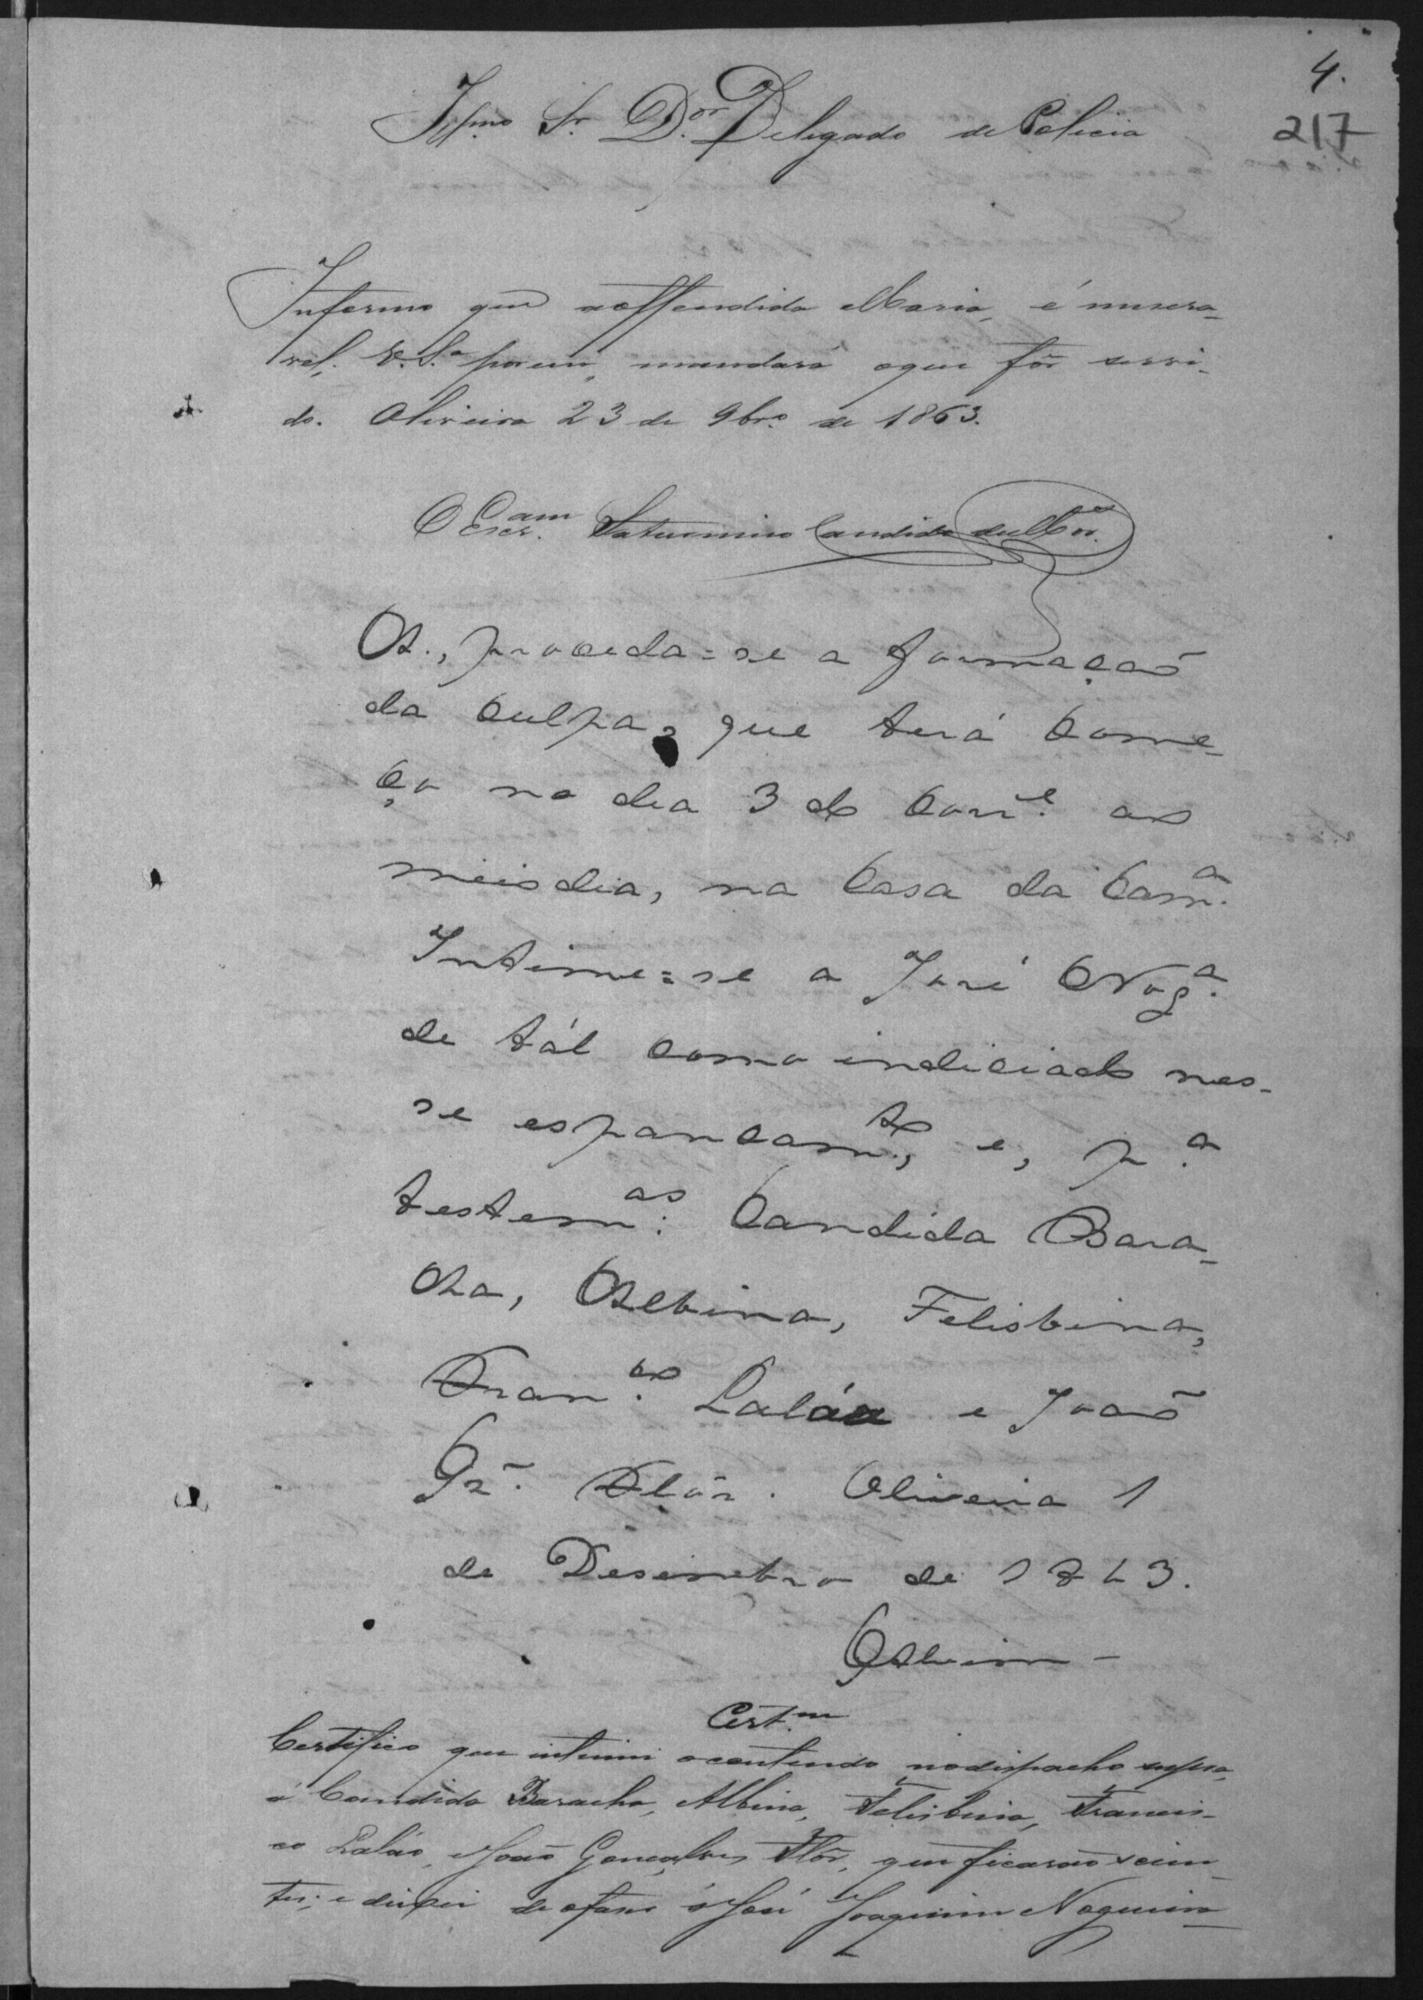 4.
217
Illmo Sr. Dor. Delegado de Policia
Informo que a offendida Maria, é misera-
vel. V. Sa. porem, mandará o que fôr servi-
do. Oliveira 23 de 9bro. de 1863.
O Escram. Saturnino Candido de
A., proceda=se a formação
da culpa, que terá come-
ço no dia 3 do corre. ao
meio dia, na Casa da Cama.
Intime=se a José Noga.
de tál como indiciado nes-
se espancamto., e, pa.
testemas. Candida Bara-
xa, Albina, Felisbina,
Franco. Laláu e João
Gz. Flôr. Oliveira 1
de Desembro de 1863.
Alvim
Certm.
Certifico que intimei o contendo no dispacho supra,
á Candida Baracha, Albina, Felisbina, Francis-
co Laláo, e João Gonçalves Flôr, que ficarão scien-
tes; e deixei de o faser á José Joaquim Nogueira